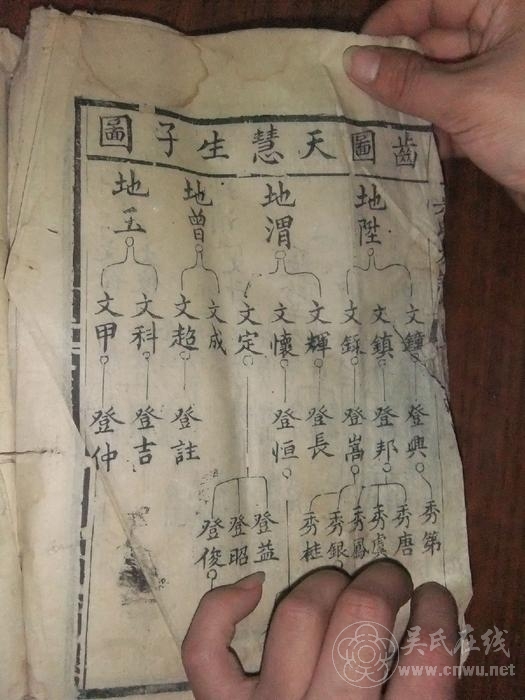 齒圖天慧生子圖
地陞
地渭
地曾
地玉
文鐘
文鎮
文錄
文輝
文懷
文定
文成
文超
文科
文甲
登興
登邦
登嵩
登長
登恒
登註
登吉
登仲
秀第
秀唐
秀虞
秀鳳
秀銀
秀桂
登益
登昭
登俊
吴氏在线
www.cnwu.net